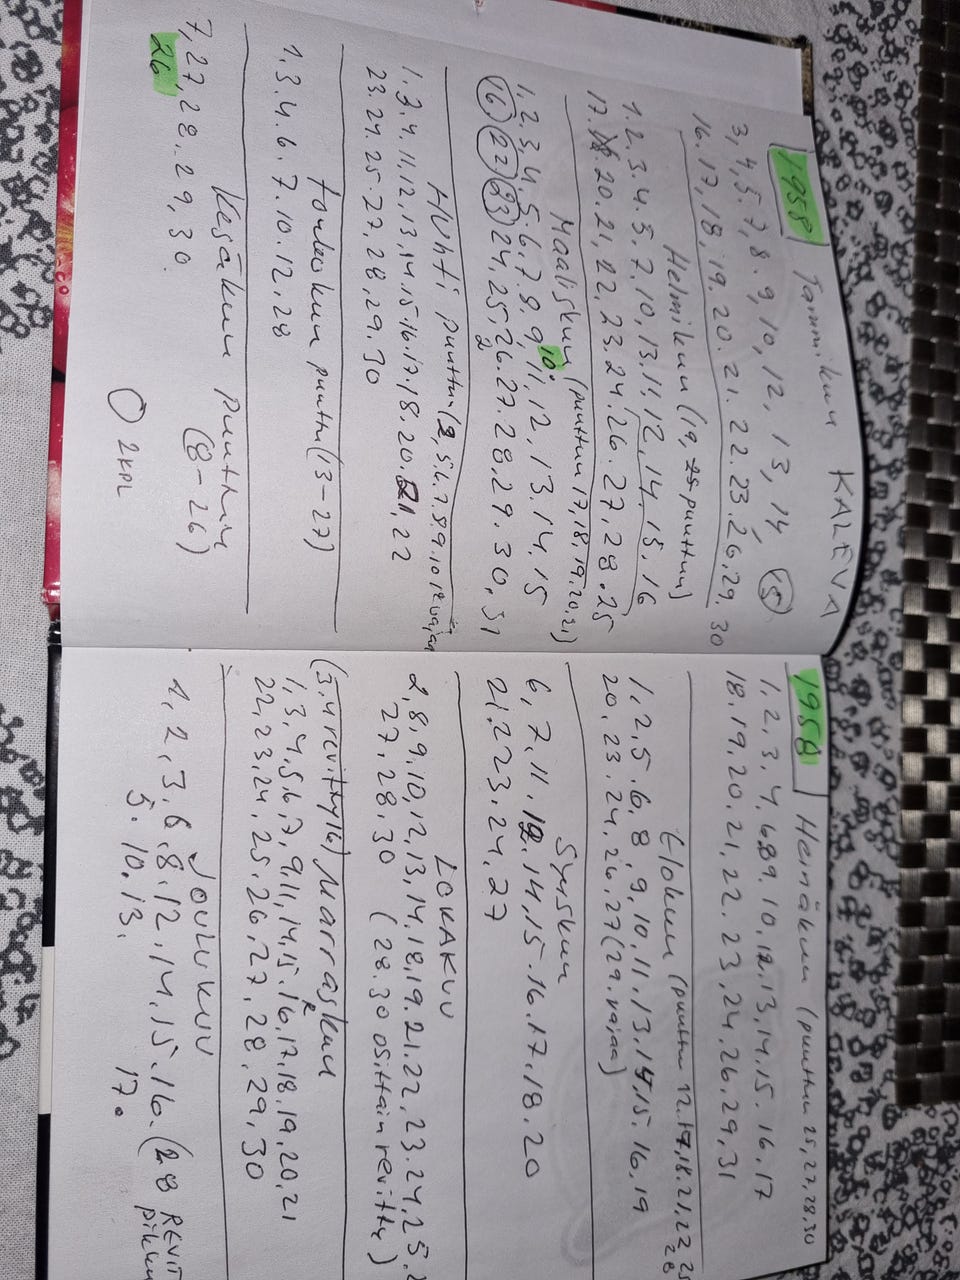 1958 Tammikuu KALEVA
3,4,5,7,8.9,10,12,13,14,(15)
16.17,18.19.20.21.22.23.26.29.30
Helmikuu (19,25 puuttuu)
1.2.3.4.5.7.10,13.11,12,14.15.16
17. 20.21,22.23.24.26.27,28.25
Maaliskuu (puuttuu 17,18.19.20.21)
1.2.3.4.5.6.7.8.9.10.11,12,13.14,15
(16)(22)(23)24,25,26.27.28.29.30,31
2
Huhti puuttuu (2,5.6.7.8.9.10
1.3.4.11.12,13,14.15.16.17.18.20.21,22
23.24.25.27,28,29.30
Toukokuu puuttu (3-27)
1.3.4.6.7.10.12.28
Kesäkuu puuttuu
(8-26)
7,27,28.29,30.
26
O 2KPL
1958 Heinäkuu (puuttuu 25,27,28.30
1,2,3,4,6.8.9.10.12.13,14.15.16.17
18.19.20,21,22.23,24.26.29,31
Elokuu (puuttuu 12.17,18.21,22 25
28
1,2,5.6,8,9,10.11.13.14.15.16,19
20,23.24.26.27 (29.rajaa)
Syyskuu
6,7,11,12.14,15.16.17.18.20
21.22 23,24.27
LOKAKUU
2,8,9,10,12,13,14,18,19.21.22,23.24,25.2
27,28,30 (28.30 osittain revitty)
(3,4 revitty 16) Marraskuu
1,3,4,5,6,7,9,11,14,15.16,17.18.19,20,21
R
22,23,24,25,26,27,28,29,30
JOULUKUU
1,2,3,6,8,12,14,15.16.(28 REVIT
5.10.13. 17.